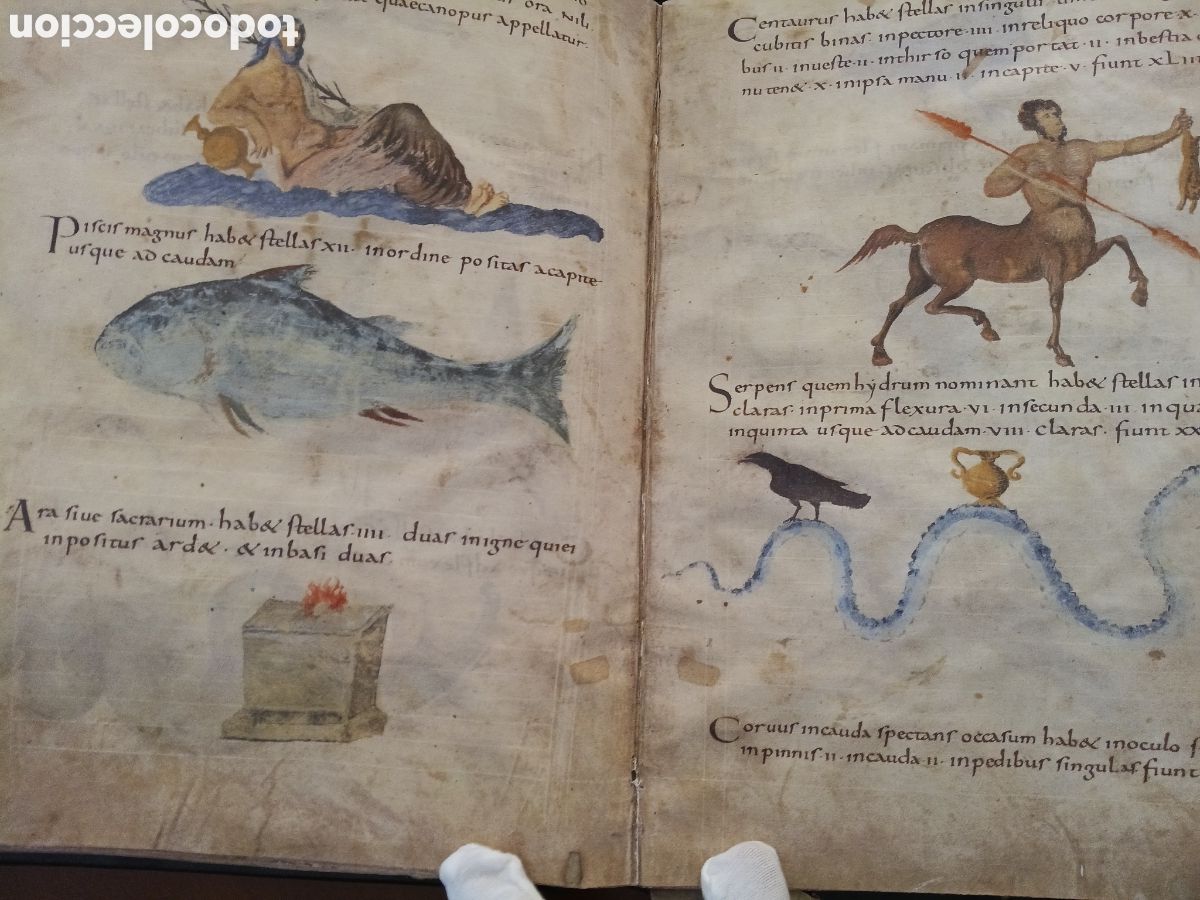 todocoleccion
ora Nili
quaecanopus appellatur.
Piscis magnus hab& stellas XII. inordine positas acapite
usque ad caudam
Ara sive sacrarium. hab& stellas. IIII. duas inigne quiei
inpositus ard&. & inbasi duas.
Centaurus hab& stellas insingulis
cubitis binas. inpectore. IIII. inreliquo corpore. X.
bus II. investe. II. inthirso quem portat. II. inbestia
nu ten&. X. inipsa manu. II. incapite. V. fiunt XLIII
Serpens quem hydrum nominant hab& stellas in
claras. inprima flexura. VI. insecunda. III. inqua
inquinta usque ad caudam. VIII. claras. fiunt XX
Corvus incauda spectans occasum hab& inoculo
inpinnis. II. incauda. II. inpedibus singulas. fiunt